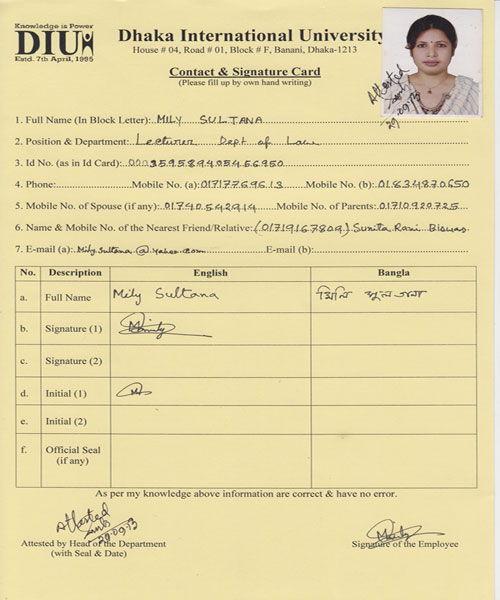 Knowledge is Power
DIU
Estd. 7th April, 1995
Dhaka International University
House # 04, Road # 01, Block # F, Banani, Dhaka-1213
Contact & Signature Card
(Please fill up by own hand writing)
Attested
29.09.13
1. Full Name (In Block Letter): MILY SULTANA
2. Position & Department: Lecturer Dept of Law
3. Id No. (as in Id Card):
4. Phone: Mobile No. (a): 01717769613 Mobile No. (b): 01834870650
5. Mobile No. of Spouse (if any): 01740542914 Mobile No. of Parents: 01710920725
6. Name & Mobile No. of the Nearest Friend/Relative: (01719167809) Sunita Rani Biswas.
7. E-mail (a): Mily Sultana@yahoo.com E-mail (b):
No. Description English Bangla
a. Full Name Mily Sultana মিলি সুলতানা
b. Signature (1) Mily
c. Signature (2)
d. Initial (1)
e. Initial (2)
f. Official Seal (if any)
As per my knowledge above information are correct & have no error.
Attested
29.09.13
Attested by Head of the Department
(with Seal & Date)
Mily
Signature of the Employee